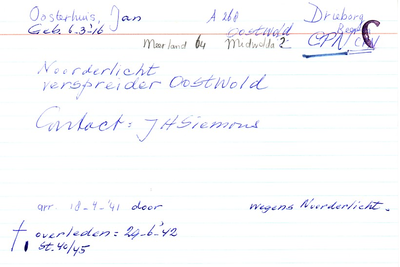 Oosterhuis, Jan A 268 Druborg
Geb. 6.3.'16 Oostwold
Meerland 64 Midwolda 2 CPN C
Noorderlicht
verspreider Oostwold
Contact: J H Siemons
arr. 18-4-'41 door wegens Noorderlicht.
† overleden = 29-6-'42
St. 40/45